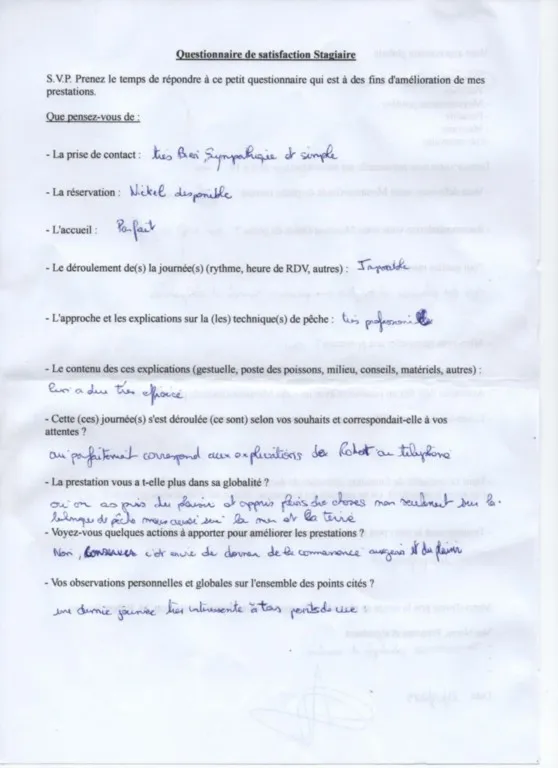 Questionnaire de satisfaction Stagiaire
S.V.P. Prenez le temps de répondre à ce petit questionnaire qui est à des fins d'amélioration de mes
prestations.
Que pensez-vous de :
- La prise de contact : très Bien Sympathique et simple
- La réservation : Nickel disponible
- L'accueil : Parfait
- Le déroulement de(s) la journée(s) (rythme, heure de RDV, autres) : Impeccable
- L'approche et les explications sur la (les) technique(s) de pêche : très
- Le contenu des ces explications (gestuelle, poste des poissons, milieu, conseils, matériels, autres) :
très efficace
- Cette (ces) journée(s) s'est déroulée (ce sont) selon vos souhaits et correspondait-elle à vos
attentes ?
parfaitement correspond aux explications de au téléphone
- La prestation vous a t-elle plus dans sa globalité ?
on a pris du plaisir et appris plein de choses non seulement sur la
de pêche mais aussi sur la mer et la terre
- Voyez-vous quelques actions à apporter pour améliorer les prestations ?
Non, cette envie de donner de la et du plaisir
- Vos observations personnelles et globales sur l'ensemble des points cités ?
une journée très intéressante à points de vue